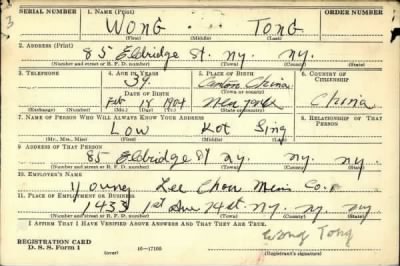 SERIAL NUMBER 1. NAME (Print) ORDER NUMBER
3 WONG TONG
(First) (Middle) (Last)
2. ADDRESS (Print)
85 Eldridge St. ny. ny.
(Number and street or R. F. D. number) (Town) (County) (State)
3. TELEPHONE 4. AGE IN YEARS 5. PLACE OF BIRTH 6. COUNTRY OF CITIZENSHIP
39. Canton China
DATE OF BIRTH (Town or county)
Feb 18 1904 New York China
(Exchange) (Number) (Mo.) (Day) (Yr.) (State or country)
7. NAME OF PERSON WHO WILL ALWAYS KNOW YOUR ADDRESS 8. RELATIONSHIP OF THAT PERSON
Low Kot Sing
(Mr., Mrs., Miss) (First) (Middle) (Last)
9. ADDRESS OF THAT PERSON
85 Eldridge St ny. ny. ny.
(Number and street or R. F. D. number) (Town) (County) (State)
10. EMPLOYER'S NAME
Young Lee Chow Mein Co.
11. PLACE OF EMPLOYMENT OR BUSINESS
1433 1st Ave 74 st. ny. ny. ny
(Number and street or R. F. D. number) (Town) (County) (State)
I AFFIRM THAT I HAVE VERIFIED ABOVE ANSWERS AND THAT THEY ARE TRUE.
REGISTRATION CARD Wong Tong
D. S. S. Form 1 (over) 16—17105 (Registrant's signature)